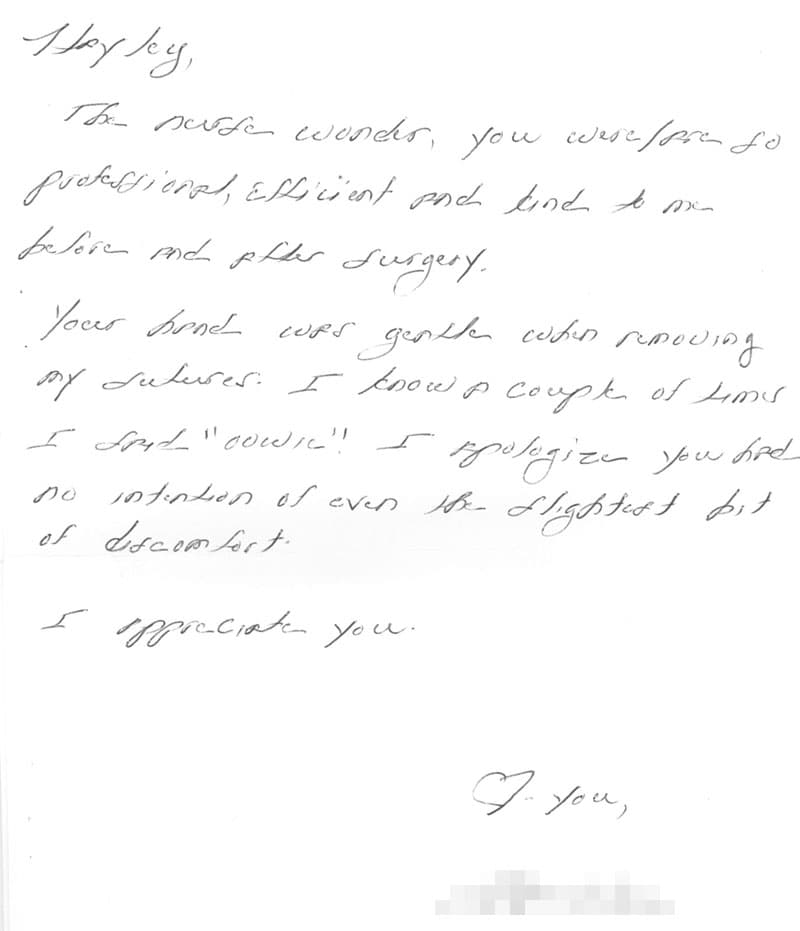 Hayley,
The nurse wonder, you were/are so
professional, Efficient and kind to me
before and after surgery.
Your hand was gentle when removing
my sutures. I know a couple of times
I said "oowie"! I apologize you had
no intention of even the slightest bit
of discomfort.
I appreciate you.
♡ you,